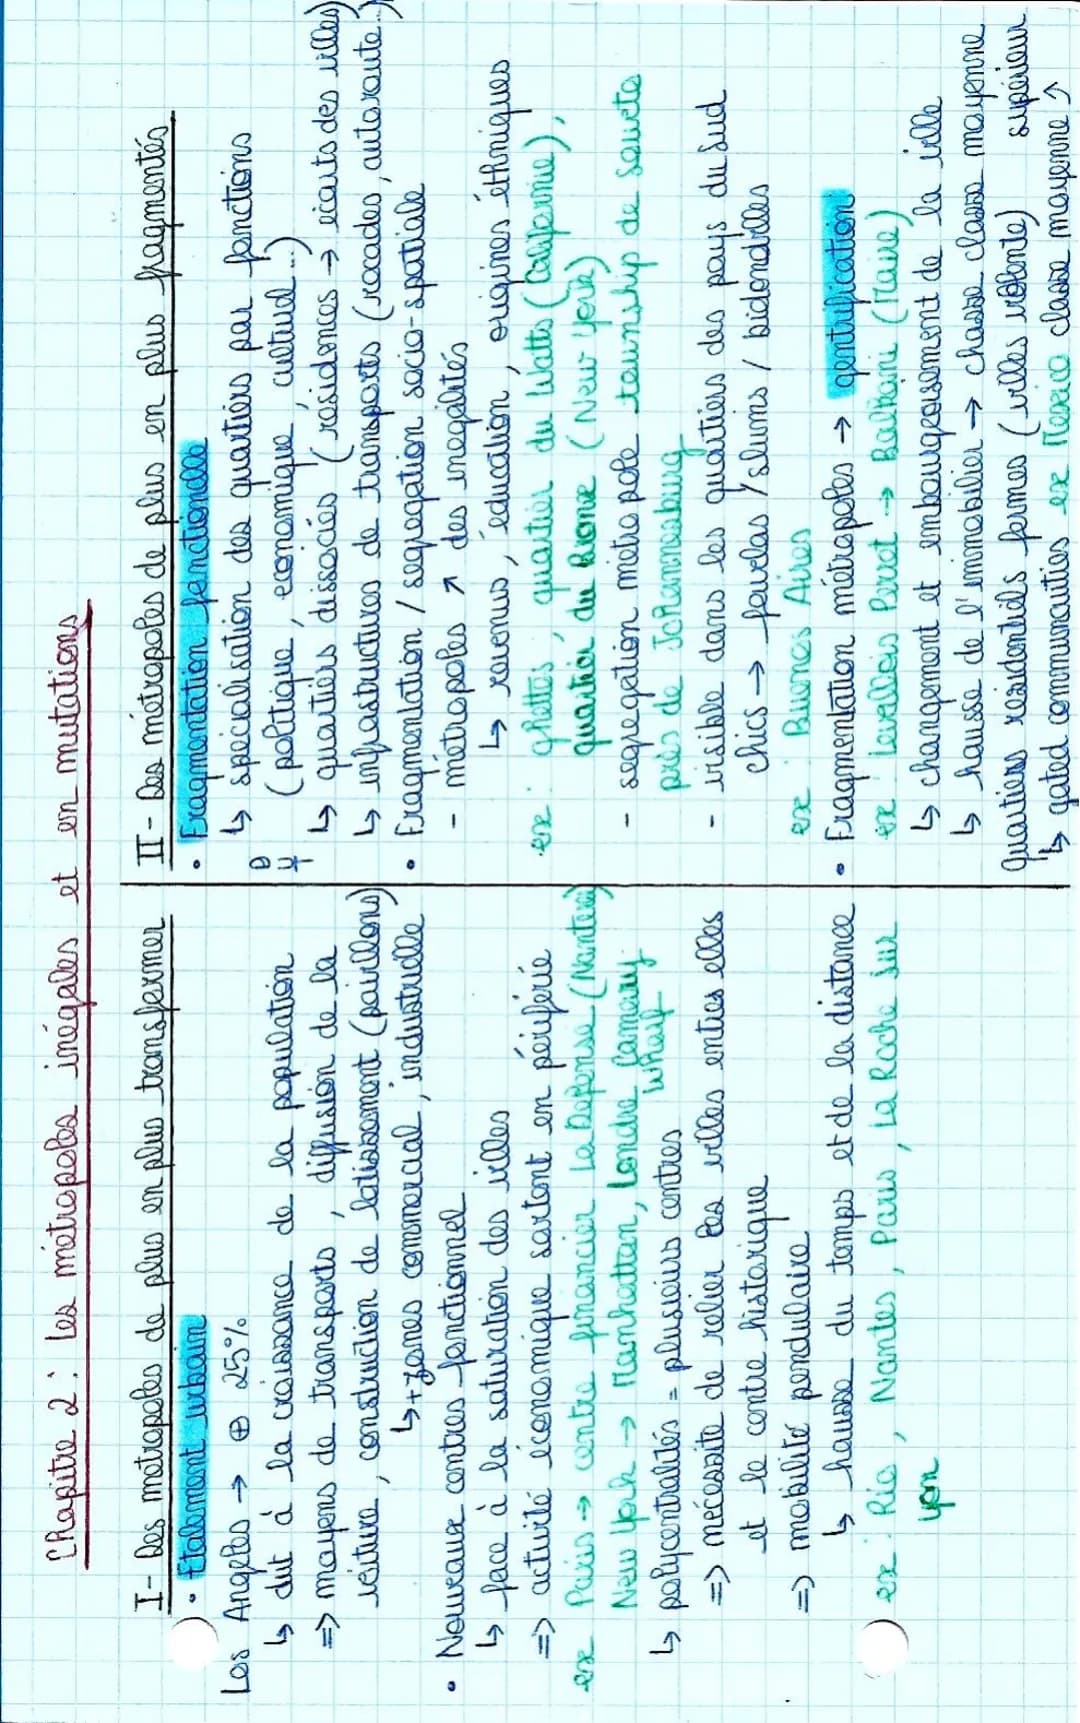 Chapitre 2 : Les métropoles inégales et en mutations
I - Des metropoles de plus en plus transformer
• Etalement urbain
Los Angeles → ⊕ 25%
↳ dut à la croissance de la population
=> moyens de transports, diffusion de la
voiture, construction de lotissement (pavillons)
↳ + zones commercial, industrielle
• Nouveaux centres fonctionnel
↳ face à la saturation des villes
=> activité économique sortent en périférie
ex Paris → centre financier La Defense (Nanterre)
New York → Manhattan, Londre Camery
Wharf
↳ polycentralités = plusieurs centres
=> nécessite de relier les villes entres elles
et le centre historique
=> mobilité pendulaire
↳ hausse du temps et de la distance
ex : Rio, Nantes, Paris, La Roche sur
yon
II - Des métropoles de plus en plus fragmentés
• Fragmentation fonctionelle
↳ spécialisation des quartiers par fonctions
(politique, economique, culturel...)
↳ quartiers dissociés (residences → écarts des villes)
↳ infrastructures de transports (rocades, autoroute...)
• Fragmentation / segregation socio-spatiale
- métropoles ↗ des inegalités
↳ revenus, éducation, origines éthniques
ex : ghettos, quartier du Watts (Californie),
quartier du Bronx (New York)
- segregation metropole township de soweto
près de Johannesburg
- visible dans les quartiers des pays du Sud
chics → favelas / slums / bidonvilles
ex : Buenos Aires
• Fragmentation métropoles → gentrification
ex : Levallois Perret → Balkani (Maire)
↳ changement et embourgeoisement de la ville
↳ hausse de l'immobilier → chasse classe moyenne
supérieur
Quartiers résidentiels fermes (villes violente)
↳ gated communauties ex Mexico classe moyenne ↗